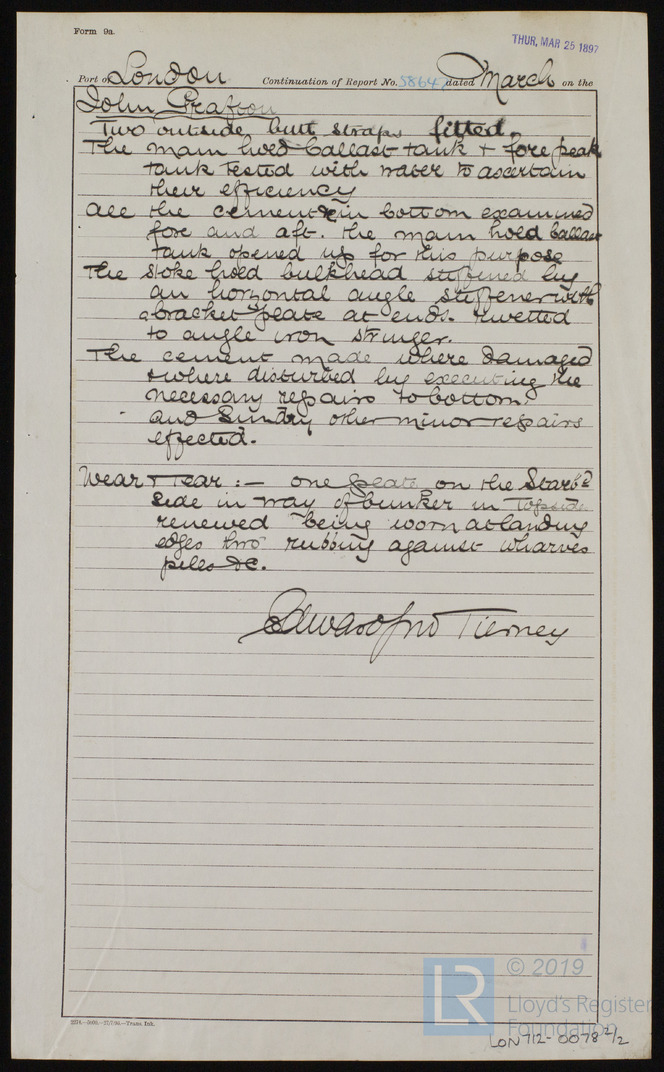 Form 9a.
THUR, MAR 25 1897
Port of London Continuation of Report No. 58647 dated March on the
John Grafton
Two outside butt straps fitted.
The main hold ballast tank + fore peak
tank tested with water to ascertain
their efficiency
all the cement in bottom examined
fore and aft. the main hold ballast
tank opened up for this purpose
The stoke hold bulkhead stiffened by
an horizontal angle stiffener with
bracket plate at ends. rivetted
to angle iron stringer.
The cement made where damaged
& where disturbed by executing the
necessary repairs to bottom.
and Sundry other minor repairs
effected.
Wear & Tear :- one plate on the Starbd
side in way of bunker in Topside
renewed being worn at landing
edges thro' rubbing against wharves
piles &c.
Edward Jno Tierney
© 2019
LR
Lloyd's Register
Foundation
LON712-0078 2/2